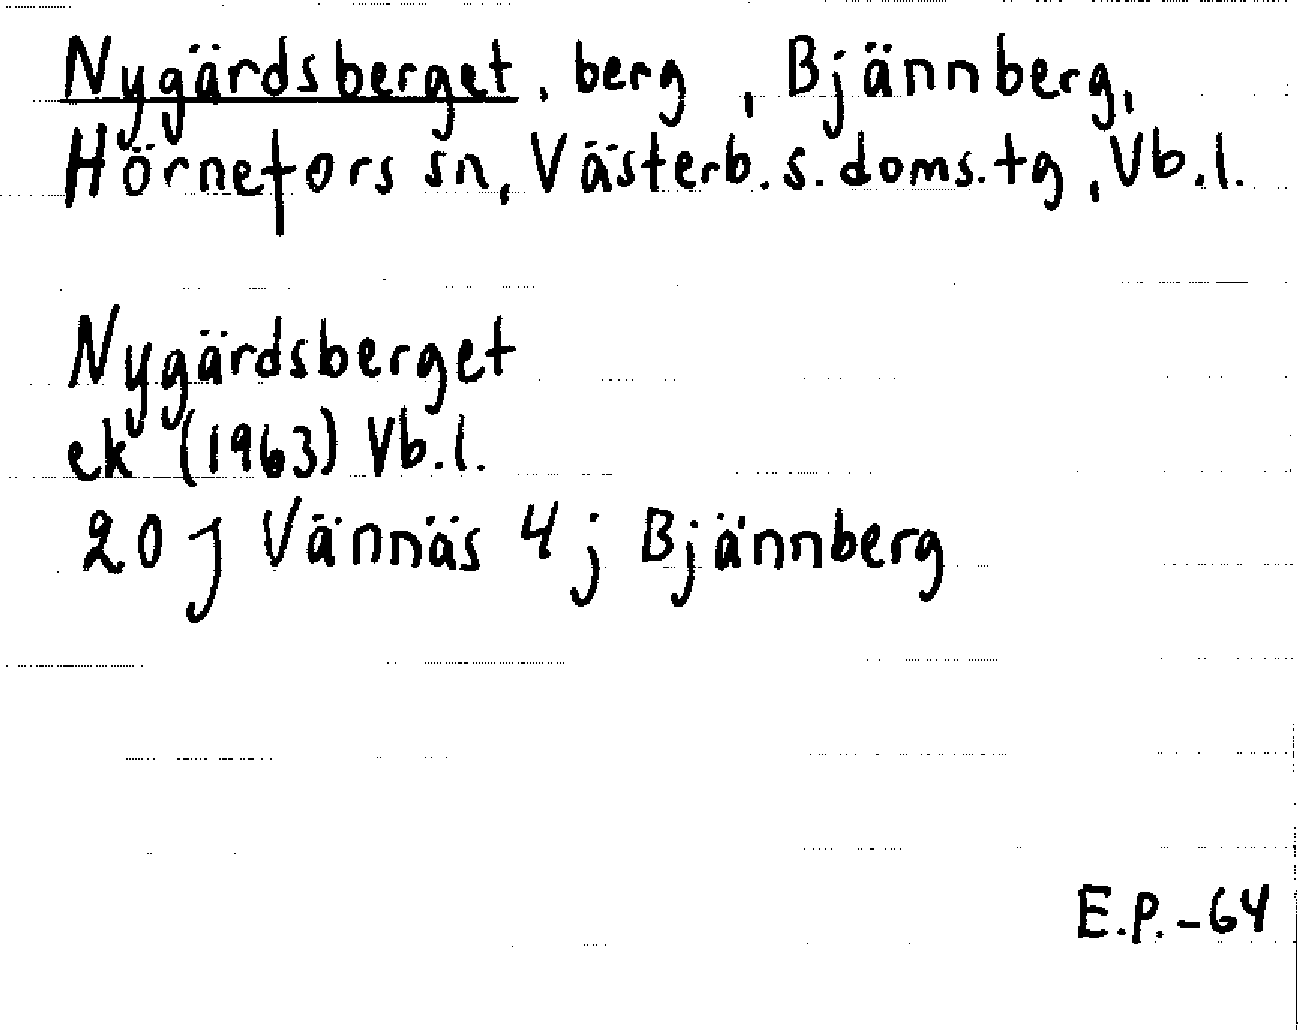 Nygärdsberget, berg, Bjännberg,
Hörnefors sn, Västerb. s. doms. tg, Vb. l.
Nygärdsberget
ek (1963) Vb. l.
20 J Vännäs 4 j Bjännberg
E.P. -64